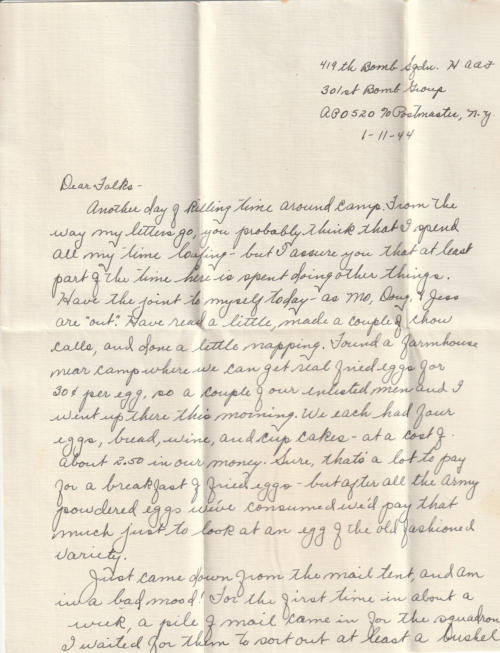 419th Bomb Sqdn. H AAF
301st Bomb Group
APO 520 % Postmaster, N.Y.
1-11-44
Dear Folks -
Another day of killing time around camp. From the
way my letters go, you probably think that I spend
all my time loafing - but I assure you that at least
part of the time here is spent doing other things.
Have the joint to myself today - as Mo, Doug, & Jess
are "out". Have read a little, made a couple of chow
calls, and done a little napping. Found a farmhouse
near camp where we can get real fried eggs for
30¢ per egg, so a couple of our enlisted men and I
went up there this morning. We each had four
eggs, bread, wine, and cup cakes - at a cost of
about 2.50 in our money. Sure, that's a lot to pay
for a breakfast of fried eggs - but after all the army
powdered eggs we've consumed we'd pay that
much just to look at an egg of the old fashioned
variety.
Just came down from the mail tent, and am
in a bad mood! For the first time in about a
week, a pile of mail came in for the squadron
I waited for them to sort out at least a bushel